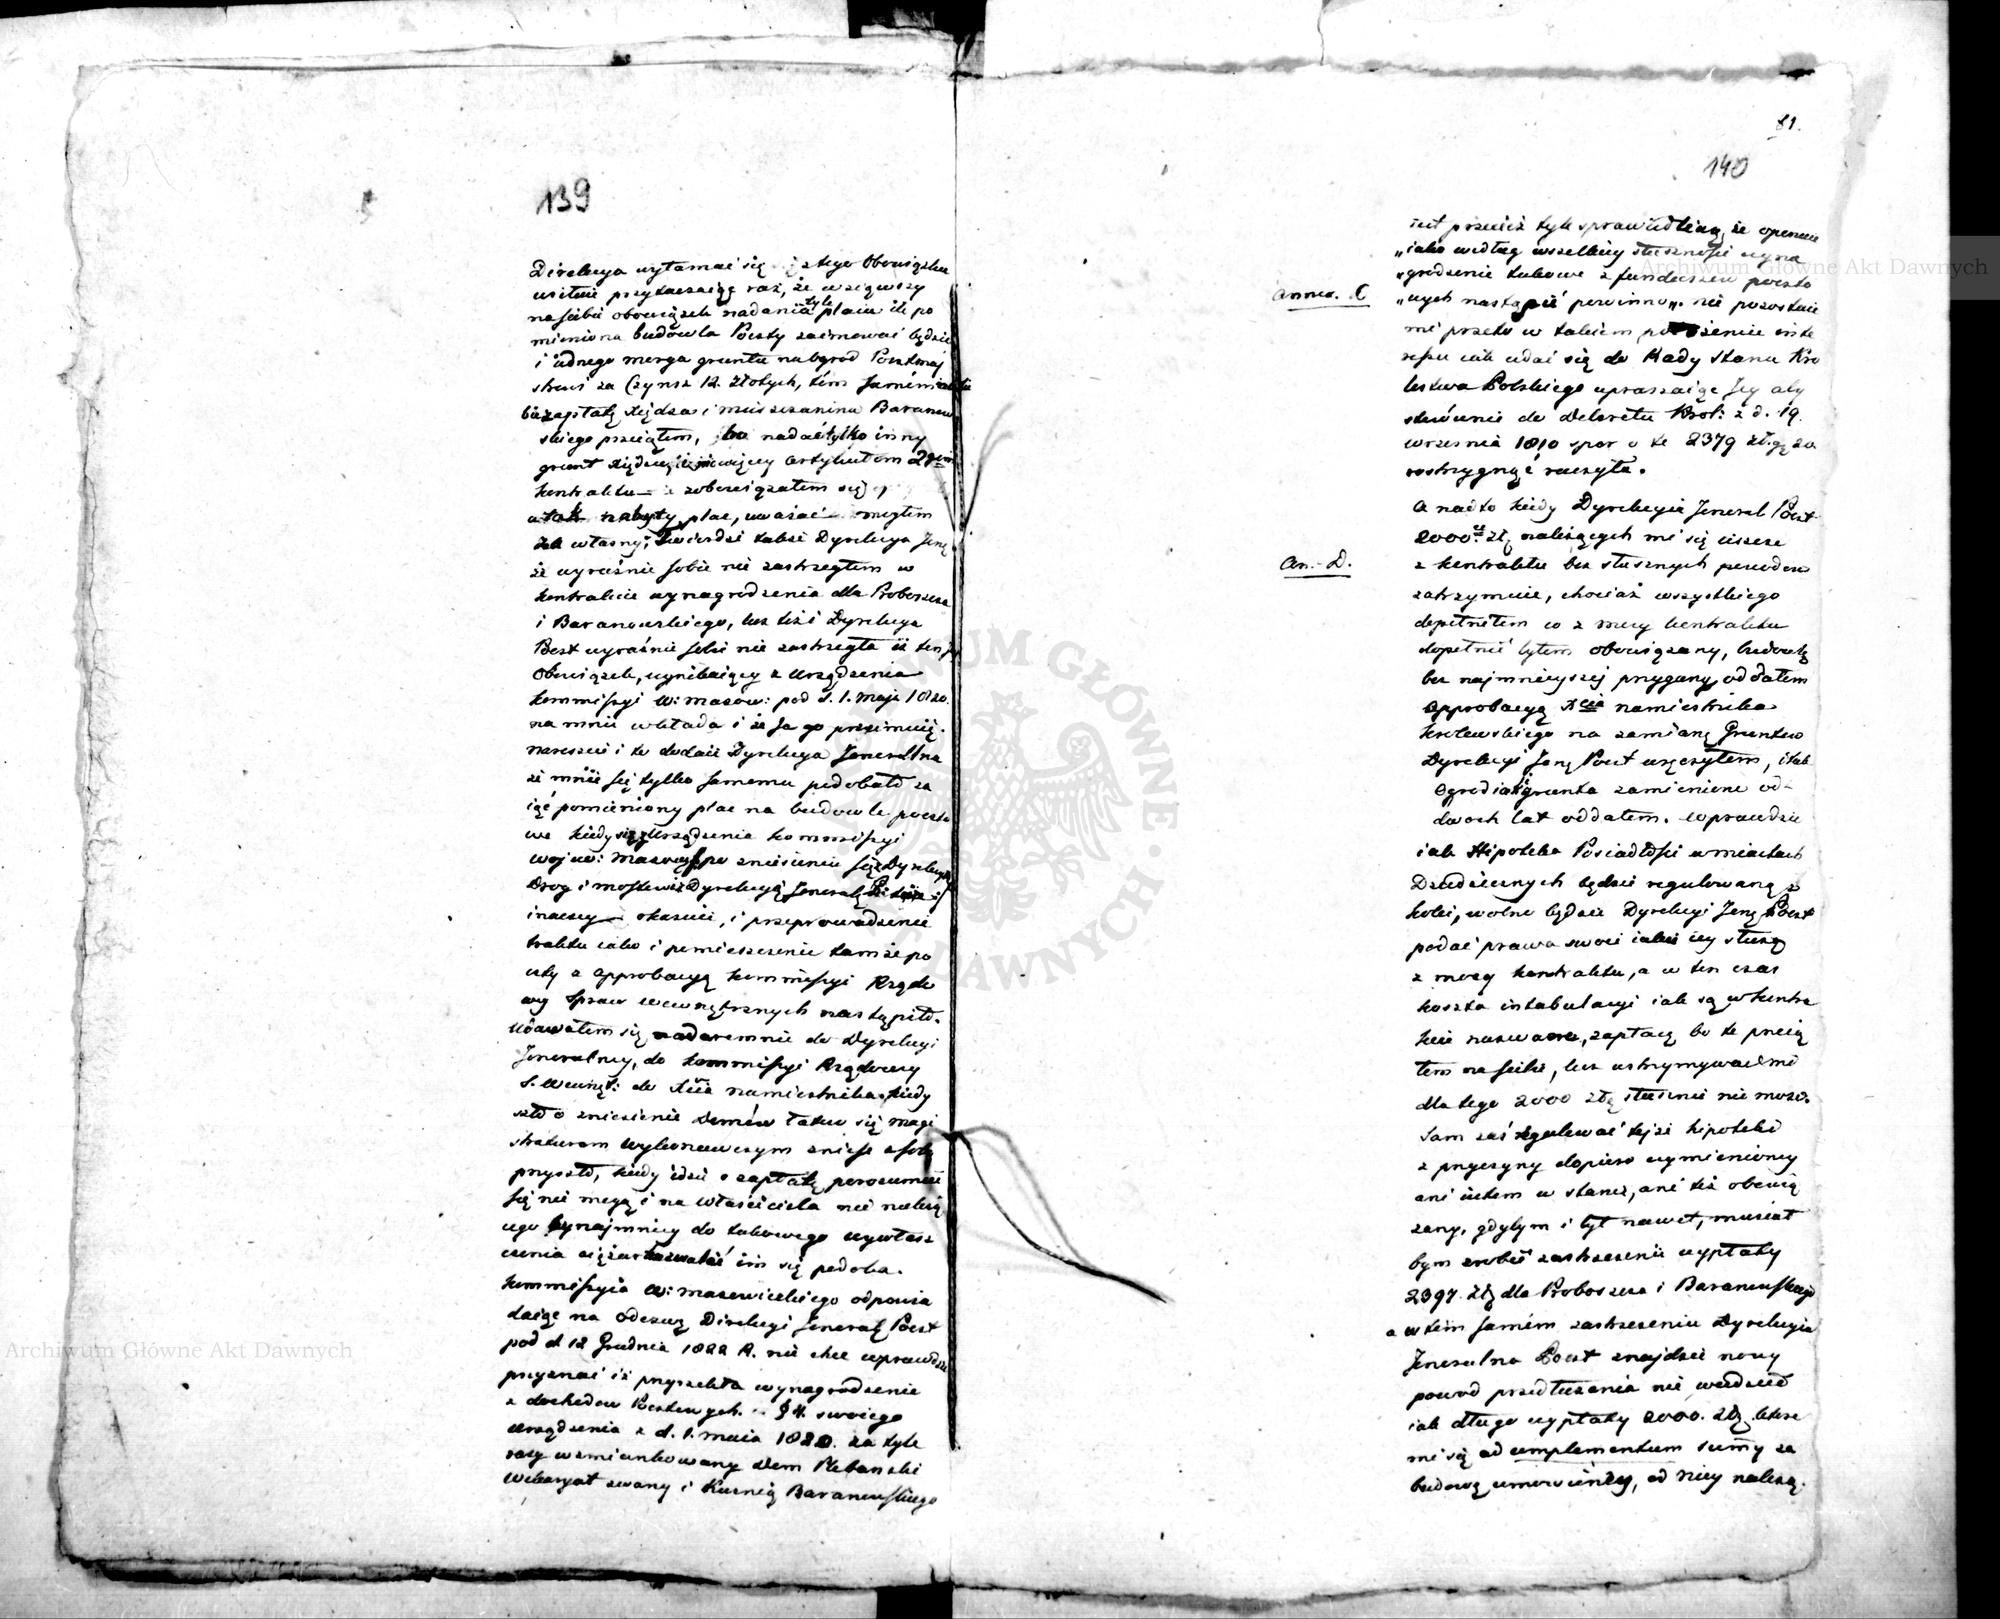 139
Direkcya wyłamać się z tego Obowiązku
usilnie przytaczaiąc raz, że wziąwszy
na siebie obowiązek nadania tyle placu ile po
mieniona budowla Poczty zaimować będzie
i iednego morga gruntu na ogrod Pocztmaj
strowi za Czynsz 12. złotych, tém samém
zapłatę Xiędza i mieszczanina Baranow
skiego przeiąłem, nadać tylko inny
grunt artykułem 2gim
kontraktu zobowiązałem się
a tak nabyty plac, uważać mogłem
za własny; twierdzi także Dyrekcya Jenę
że wyraźnie sobie nie zastrzegłem w
kontrakcie wynagrodzenia dla Proboszcza
i Baranowskiego, lecz też i Dyrekcya
Poczt wyraźnie sobie nie zastrzegła iż ten
Obowiązek, wynikaiący z Urządzenia
Kommissyi W: Mazow: pod d. 1. Maja 1820.
na mnie wkłada i że ja go przeimuię.
nareszcie i to dodaie Dyrekcya Jeneralna
że mnie się tylko samemu podobało za
iąć pomieniony plac na budowle poczto
we kiedy się z Urządzenia Kommissyi
Wojew: Mazow po zniesieniu się z Dyrekcyą
Drog i mostow i z Dyrekcyą Jeneralą Poczt
inaczey okazuie, i przeprowadzenie
traktu iako i pomieszczenie tamże po
czty z approbacyą Kommissyi Rządo
wey Spraw Wewnętrznych nastąpiło.
Udawałem się nadaremnie do Dyrekcyi
Jeneralney, do Kommissyi Rządowey
S. Wewnęt: do Xcia Namiestnika, kiedy
szło o zniesienie Domów łatwo się magi
straturom wykonawczym znieść z sobą
przyszło, kiedy idzie o zapłatę porozumieć
się nie mogą i na właściciela nie należą
cego bynajmniey do takowego wywłasz
czenia ciężar zwalać im się podoba.
Kommissyia W: Mazowieckiego odpowia
daiąc na odezwę Direkcyi Jeneralę Poczt
pod d 12 Grudnia 1822 R. nie chce wprawdzie
przyznać iż przyrzekła wynagrodzenie
z dochodow Pocztowych. §4. swoiego
urządzenia z d. 1. maia 1820. za tyle
razy wzmiankowany Dom Plebański
Wikaryat zwany i Kuznię Baranowskiego
81.
140
iest przecież tyle sprawiedliwą, że
„iako według wszelkiey słuszności wyna
„grodzenie takowe z funduszow poczto
Annex. C
„wych nastąpić powinno„. nie pozostaie
mi przeto w takiem położeniu inte
ressu iak udać się do Rady Stanu Kro
lestwa Polskiego upraszaiąc Jey aby
stosównie do Dekretu Krol: z d. 19.
września 1810 spor o te 2379 zł.
rozstrzygnąć raczyła.
A nadto kiedy Dyrekcyia Jeneral Poczt
2000. złp należących mi się ieszcze
An. D.
z kontraktu bez słusznych powodow
zatrzymuie, chociaż wszystkiego
dopełniłem co z mocy kontraktu
dopełnić byłem obowiązany, budowlę
bez najmnieyszej przygany oddałem
approbacyą Xcia namiestnika
Krolewskiego na zamianę Gruntow
Dyrekcyi Jenę Poczt wręczyłem, i tak
Ogrod iako i grunta zamienione od
dwoch lat oddałem. wprawdzie
iak Hipoteka Posiadłości w miastach
Dziedzicznych będzie regulowaną z
kolei, wolno będzie Dyrekcyi Jenę Poczt
podać prawa swoie iakie iey służą
z mocy kontraktu, a w ten czas
koszta intabulacyi iak są w kontra
kcie nazwane, zapłacę bo te przeią
łem na siebie, lecz wstrzymywać mi
dla tego 2000 złp słusznie nie może.
Sam zaś regulować tejże hipoteki
z przyczyny dopiero wymienioney
ani iestem w stanie, ani też obowią
zany, gdybym i był nawet, musiał
bym zrobić zastrzeżenie wypłaty
2397. złp dla Proboszcza i Baranowskiego
a w tem samém zastrzeżeniu Dyrekcyia
Jeneralna Poczt znajdzie nowy
powod przedłużenia nie wiedzieć
iak długo wypłaty 2000. złp. które
mi się ad complementum summy za
budowę umowioney, od niey należą.